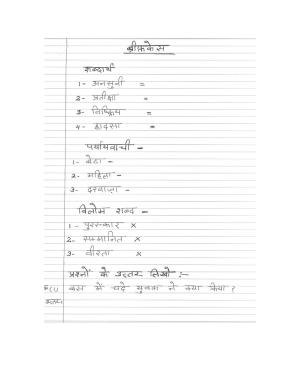 ब्रीफ़केस
शब्दार्थ
1- अनसुनी =
2- प्रतीक्षा =
3- निष्क्रिय =
4- हादसा =
पर्यायवाची -
1- बेटा -
2- महिला -
3- दरवाज़ा -
विलोम शब्द -
1- पुरस्कार ×
2- सम्मानित ×
3- वीरता ×
प्रश्नों के उत्तर लिखो :-
बस में चढ़े युवक ने क्या किया?
उत्तर